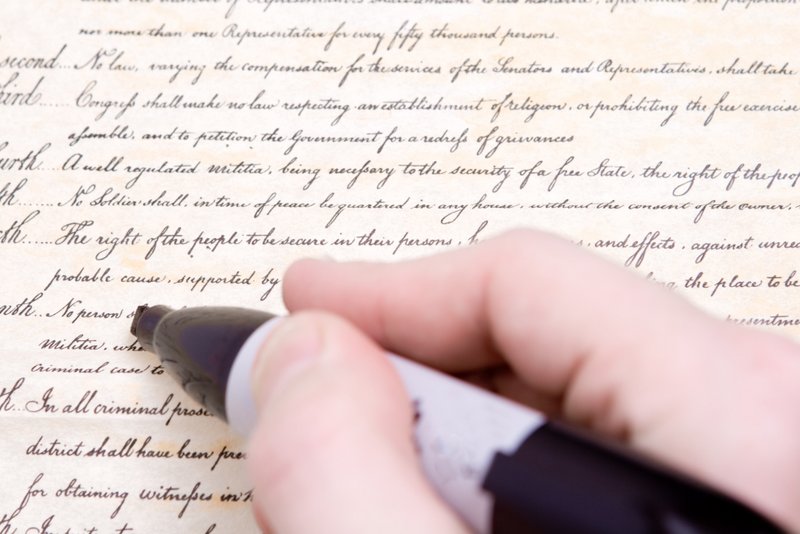 nor more than one Representative for every fifty thousand persons.
second... No law, varying the compensation for the services of the Senators and Representatives, shall take
hird...... Congress shall make no law respecting an establishment of religion, or prohibiting the free exercise
assemble, and to petition the Government for a redress of grievances
urth... A well regulated Militia, being necessary to the security of a free State, the right of the peop
th.... No Soldier shall, in time of peace be quartered in any house, without the consent of the owner,
th...... The right of the people to be secure in their persons, and effects, against unrea
probable cause, supported by the place to be
nth.. No person
Militia, whe
criminal case to
h.. In all criminal prose
district shall have been pre
for obtaining witnesses in h